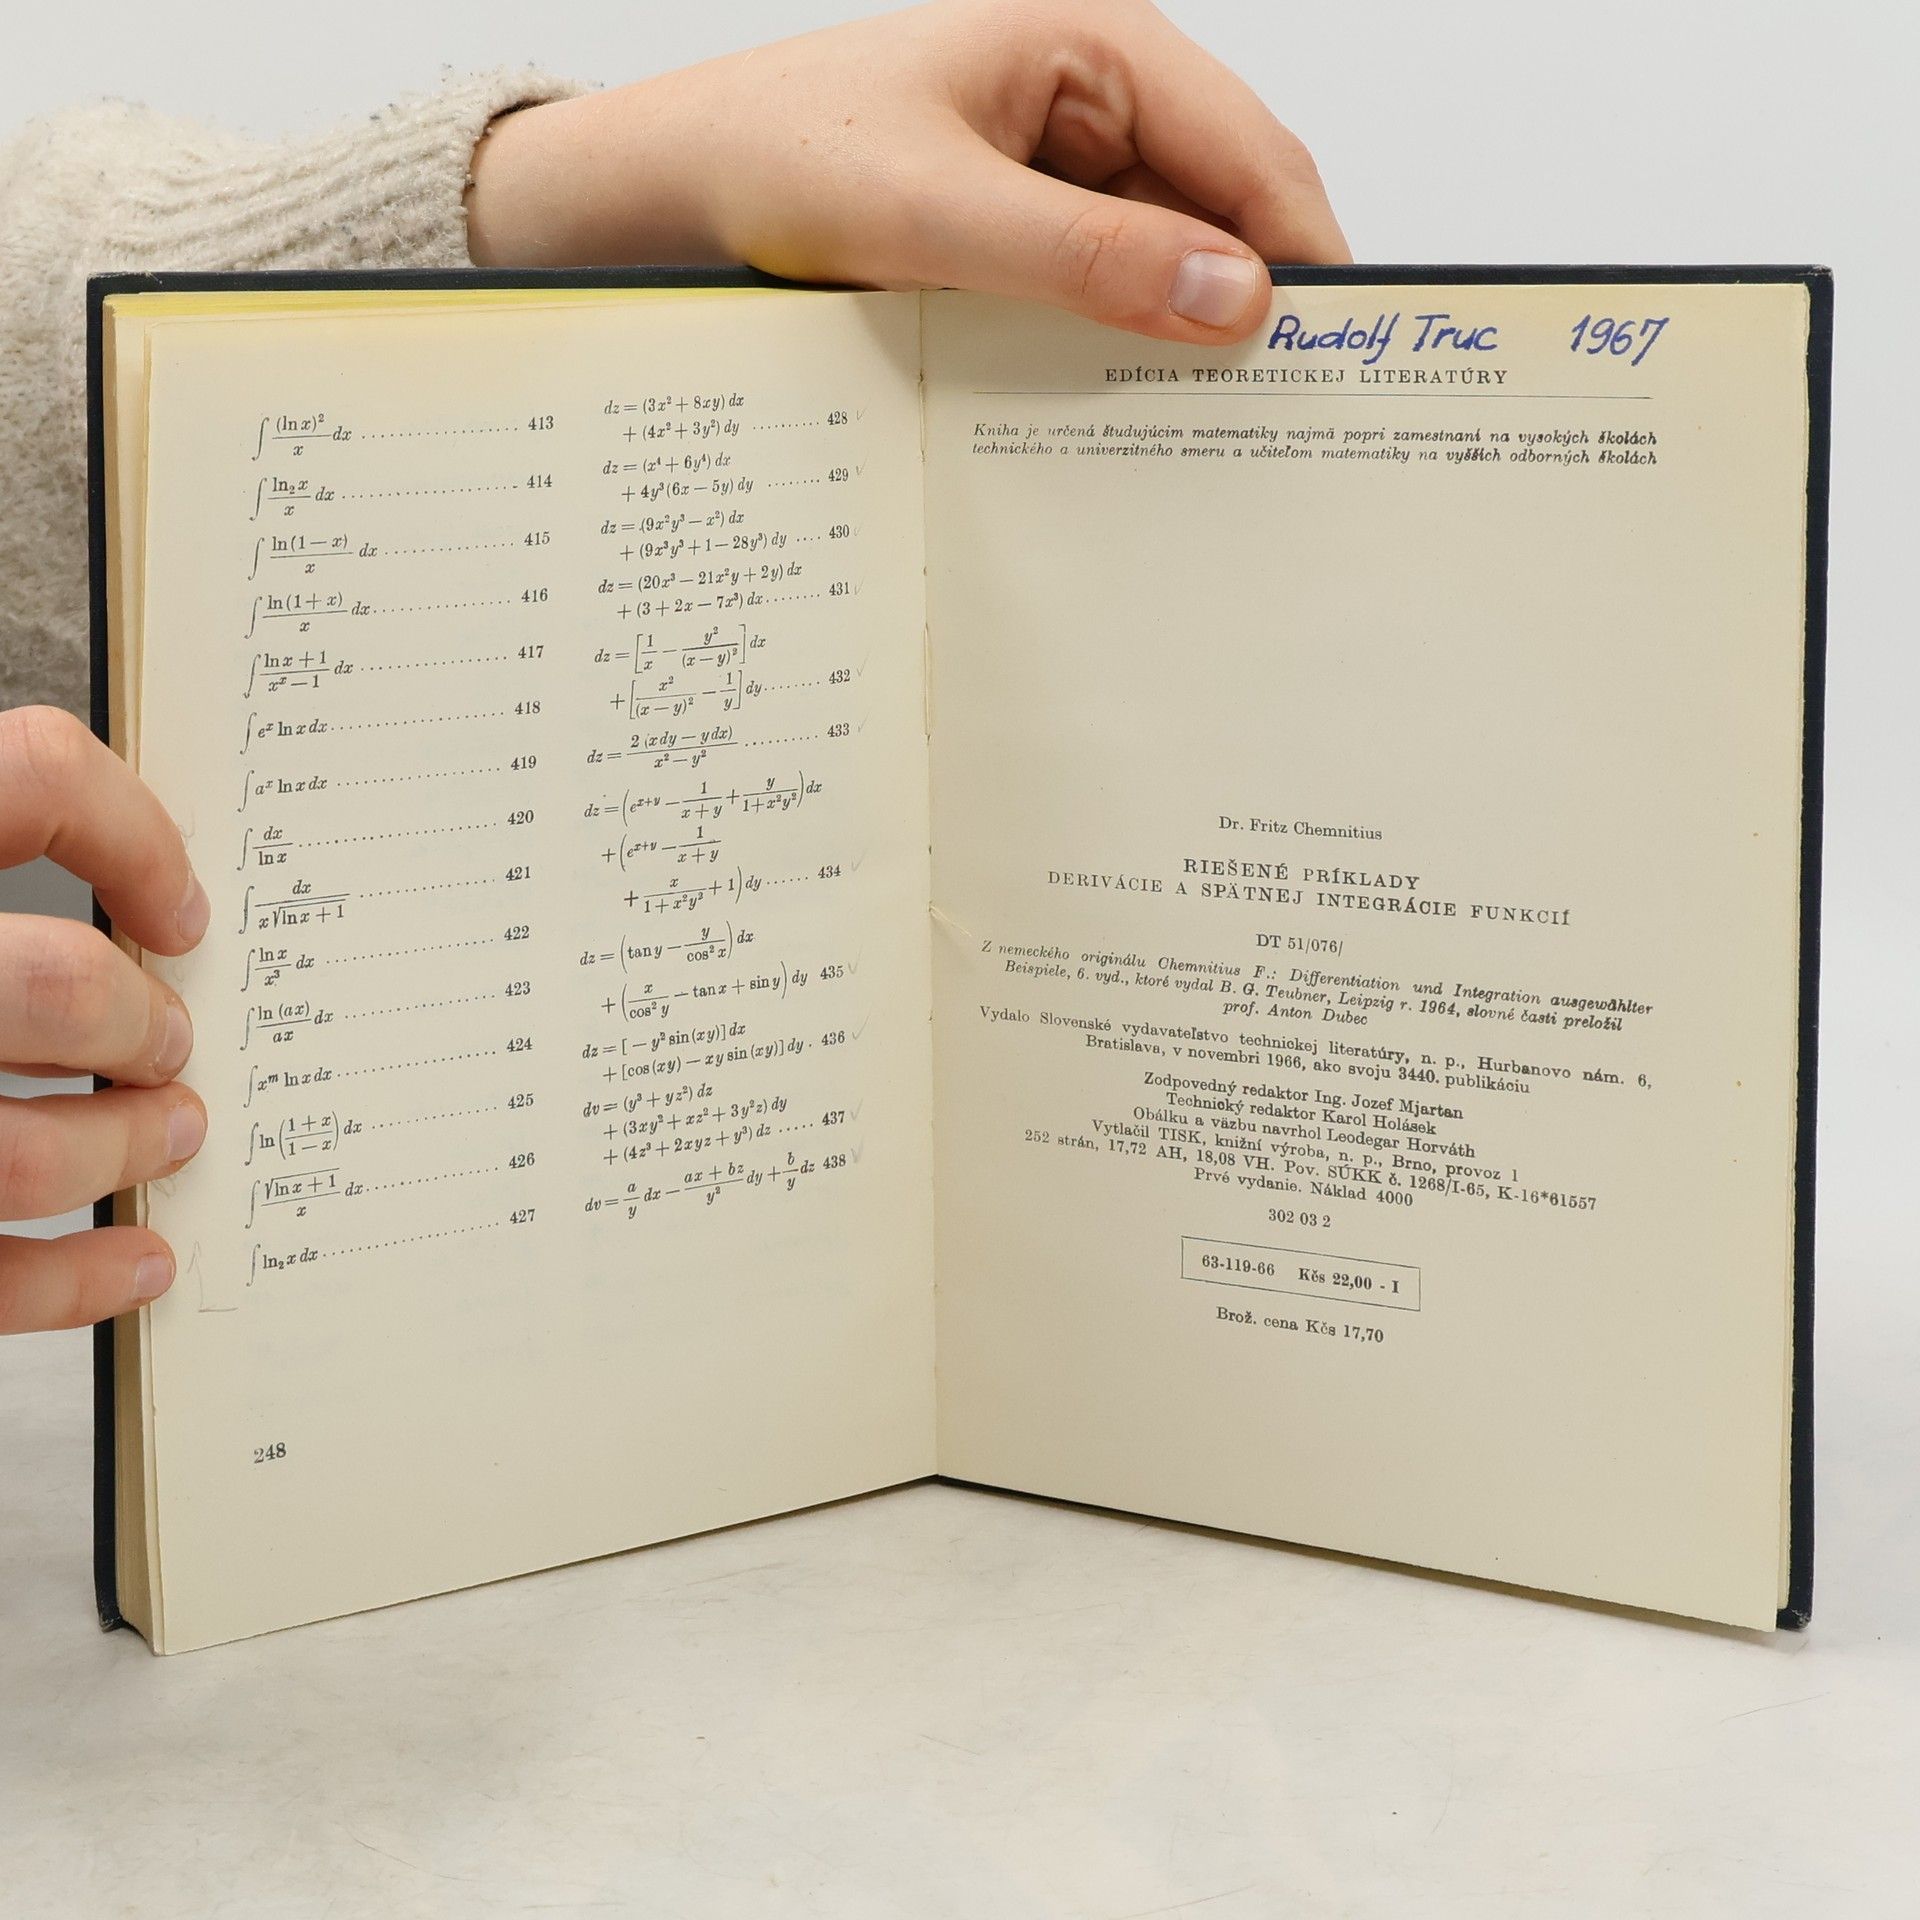 ∫ (ln x)²/x dx .................. 413
∫ ln₂ x/x dx .................. 414
∫ ln (1 − x)/x dx .............. 415
∫ ln (1 + x)/x dx .............. 416
∫ ln x + 1/xˣ − 1 dx ................ 417
∫ eˣ ln x dx .................. 418
∫ aˣ ln x dx .................. 419
∫ dx/ln x ..................... 420
∫ dx/x √ln x + 1 .............. 421
∫ ln x/x³ dx .................. 422
∫ ln (ax)/ax dx ................ 423
∫ xᵐ ln x dx .................. 424
∫ ln (1 + x/1 − x) dx .............. 425
∫ √ln x + 1/x dx .............. 426
∫ ln₂ x dx .................. 427
dz = (3x² + 8xy) dx
+ (4x² + 3y²) dy .......... 428
dz = (x⁴ + 6y⁴) dx
+ 4y³(6x − 5y) dy ........ 429
dz = (9x²y³ − x²) dx
+ (9x³y³ + 1 − 28y³) dy .... 430
dz = (20x³ − 21x²y + 2y) dx
+ (3 + 2x − 7x³) dx........ 431
dz = [1/x − y²/(x − y)²] dx
+ [x²/(x − y)² − 1/y] dy........ 432
dz = 2 (x dy − y dx)/x² − y² .......... 433
dz = (eˣ⁺ʸ − 1/x + y + y/1 + x²y²) dx
+ (eˣ⁺ʸ − 1/x + y
+ x/1 + x²y² + 1) dy ...... 434
dz = (tan y − y/cos² x) dx
+ (x/cos² y − tan x + sin y) dy 435
dz = [− y² sin (xy)] dx
+ [cos (xy) − xy sin (xy)] dy . 436
dv = (y³ + yz²) dz
+ (3xy² + xz² + 3y²z) dy
+ (4z³ + 2xyz + y³) dz ..... 437
dv = a/y dx − ax + bz/y² dy + b/y dz 438
248
Rudolf Truc 1967
EDÍCIA TEORETICKEJ LITERATÚRY
Kniha je určená študujúcim matematiky najmä popri zamestnaní na vysokých školách
technického a univerzitného smeru a učiteľom matematiky na vyšších odborných školách
Dr. Fritz Chemnitius
RIEŠENÉ PRÍKLADY
DERIVÁCIE A SPÄTNEJ INTEGRÁCIE FUNKCIÍ
DT 51/076/
Z nemeckého originálu Chemnitius F.: Differentiation und Integration ausgewählter
Beispiele, 6. vyd., ktoré vydal B. G. Teubner, Leipzig r. 1964, slovné časti preložil
prof. Anton Dubec
Vydalo Slovenské vydavateľstvo technickej literatúry, n. p., Hurbanovo nám. 6,
Bratislava, v novembri 1966, ako svoju 3440. publikáciu
Zodpovedný redaktor Ing. Jozef Mjartan
Technický redaktor Karol Holásek
Obálku a väzbu navrhol Leodegar Horváth
Vytlačil TISK, knižní výroba, n. p., Brno, provoz 1
252 strán, 17,72 AH, 18,08 VH. Pov. SÚKK č. 1268/I-65, K-16*61557
Prvé vydanie. Náklad 4000
302 03 2
63-119-66 Kčs 22,00 - I
Brož. cena Kčs 17,70